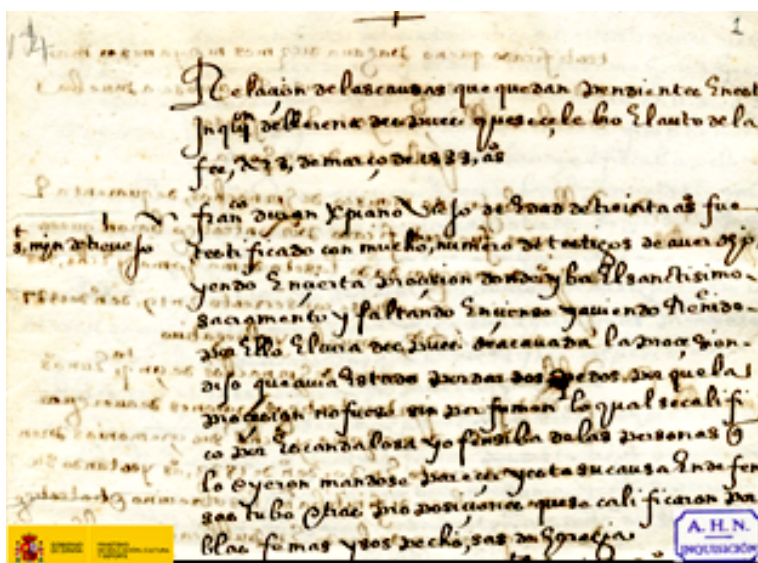 1
Relacion de las causas que quedan pendientes en est
Inqon de llerena despues que se çelebro El auto de la
fee, de março de as
franco duran xpiano Viejo de hedad de treinta as fue
s. mjn de trevejo
testificado con mucho, numero de testigos de aver
yendo En çierta proçesion donde yba El sanctisimo
sacramento y faltando Ençienso y aviendo Reñido
por Ello El cura despues de acavada la proçesion
dijo que avia Estado por dar dos pedos por que la
proçesion no fuese sin perfumon lo qual se califi
co por Escandalosa y ofensiba de las personas q
lo oyeron mandose pareçer y esta su causa En defen
sas tubo otras proposiciones que se calificaron por
blasfemas y sospechosas de
GOBIERNO
DE ESPAÑA
MINISTERIO
DE EDUCACIÓN, CULTURA
Y DEPORTE
A. H. N.
INQUISICIÓN